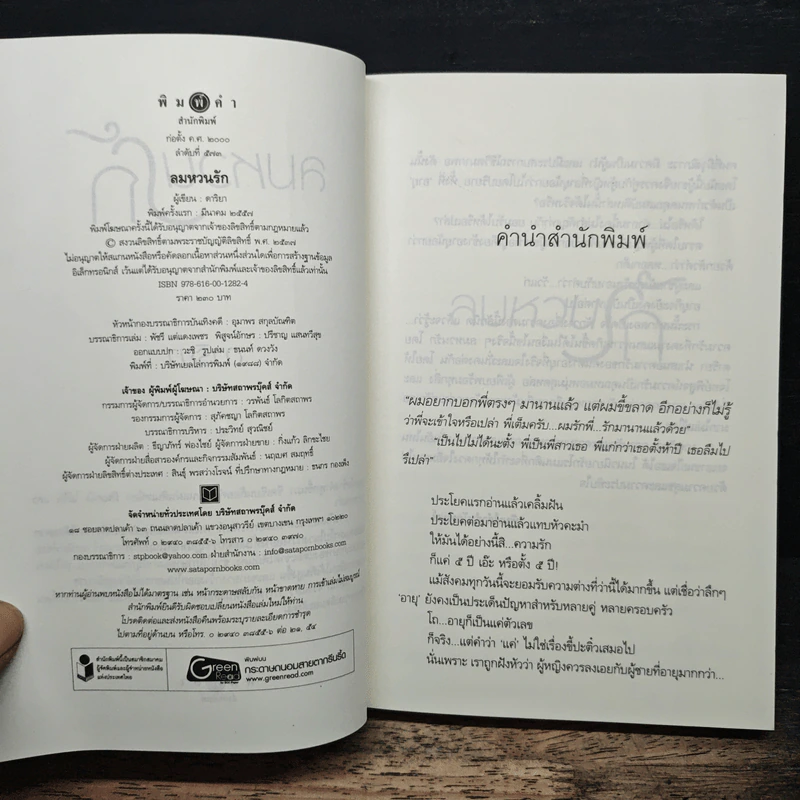 พิมพ์คำ
สำนักพิมพ์
ก่อตั้ง ค.ศ. ๒๐๐๐
ลำดับที่ ๕๗๓
ลมหวนรัก
ผู้เขียน : ดาริยา
พิมพ์ครั้งแรก : มีนาคม ๒๕๕๗
พิมพ์โฆษณาครั้งนี้ได้รับอนุญาตจากเจ้าของลิขสิทธิ์ตามกฎหมายแล้ว
© สงวนลิขสิทธิ์ตามพระราชบัญญัติลิขสิทธิ์ พ.ศ. ๒๕๓๗
ไม่อนุญาตให้สแกนหนังสือหรือคัดลอกเนื้อหาส่วนหนึ่งส่วนใดเพื่อการสร้างฐานข้อมูล
อิเล็กทรอนิกส์ เว้นแต่ได้รับอนุญาตจากสำนักพิมพ์และเจ้าของลิขสิทธิ์แล้วเท่านั้น
ISBN 978-616-00-1282-4
ราคา ๒๓๐ บาท
หัวหน้ากองบรรณาธิการบันเทิงคดี : อุมาพร สกุลบัณฑิต
บรรณาธิการเล่ม : พัชรี แต่แดงเพชร พิสูจน์อักษร : ปรีชาญ แสนทวีสุข
ออกแบบปก : วะชิ รูปเล่ม : ธนนท์ ดวงวัง
พิมพ์ที่ : บริษัทเยลโล่การพิมพ์ (๑๙๘๘) จำกัด
เจ้าของ ผู้พิมพ์ผู้โฆษณา : บริษัทสถาพรบุ๊คส์ จำกัด
กรรมการผู้จัดการ/บรรณาธิการอำนวยการ : วรพันธ์ โลกิตสถาพร
รองกรรมการผู้จัดการ : สุภัคชญา โลกิตสถาพร
บรรณาธิการบริหาร : ประวิทย์ สุวณิชย์
ผู้จัดการฝ่ายผลิต : ธีญาภัทร์ ฟองไชย์ ผู้จัดการฝ่ายขาย : กิ่งแก้ว ลิกขะไชย
ผู้จัดการฝ่ายสื่อสารองค์กรและกิจกรรมสัมพันธ์ : นฤมศ สมฤทธิ์
ผู้จัดการฝ่ายลิขสิทธิ์ต่างประเทศ : สินธุ์ พรสว่างโรจน์ ที่ปรึกษาทางกฎหมาย : ธนกร กองเพ็ง
จัดจำหน่ายทั่วประเทศโดย บริษัทสถาพรบุ๊คส์ จำกัด
๑๘ ซอยลาดปลาเค้า ๖๓ ถนนลาดปลาเค้า แขวงอนุสาวรีย์ เขตบางเขน กรุงเทพฯ ๑๐๒๒๐
โทรศัพท์ ๐ ๒๙๔๐ ๓๘๕๕-๖ โทรสาร ๐ ๒๙๔๐ ๓๙๗๐
กองบรรณาธิการ : stpbook@yahoo.com ฝ่ายสำนักงาน : info@satapornbooks.com
www.satapornbooks.com
หากท่านผู้อ่านพบหนังสือไม่ได้มาตรฐาน เช่น หน้ากระดาษสลับกัน หน้าขาดหาย การเข้าเล่มไม่สมบูรณ์
สำนักพิมพ์ยินดีรับผิดชอบเปลี่ยนหนังสือเล่มใหม่ให้ท่าน
โปรดติดต่อและส่งหนังสือคืนพร้อมระบุรายละเอียดการชำรุด
ไปตามที่อยู่ด้านบน หรือโทร. ๐ ๒๙๔๐ ๓๘๕๕-๖ ต่อ ๒๑, ๕๔
สำนักพิมพ์นี้เป็นสมาชิกสมาคม
ผู้จัดพิมพ์และผู้จำหน่ายหนังสือ
แห่งประเทศไทย
Green Read
พิมพ์บน
กระดาษถนอมสายตากรีนรี้ด
www.greenread.com
คำนำสำนักพิมพ์
“ผมอยากบอกพี่ตรงๆ มานานแล้ว แต่ผมขี้ขลาด อีกอย่างก็ไม่รู้
ว่าพี่จะเข้าใจหรือเปล่า พี่เต็มครับ...ผมรักพี่...รักมานานแล้วด้วย”
“เป็นไปไม่ได้นะตั้ง พี่เป็นพี่สาวเธอ พี่แก่กว่าเธอตั้งห้าปี เธอลืมไป
รึเปล่า”
ประโยคแรกอ่านแล้วเคลิ้มฝัน
ประโยคต่อมาอ่านแล้วแทบหัวคะมำ
ให้มันได้อย่างนี้สิ...ความรัก
ก็แค่ ๕ ปี เอ๊ะ หรือตั้ง ๕ ปี!
แม้สังคมทุกวันนี้จะยอมรับความต่างที่ว่านี้ได้มากขึ้น แต่เชื่อว่าลึกๆ
‘อายุ’ ยังคงเป็นประเด็นปัญหาสำหรับหลายคู่ หลายครอบครัว
โถ...อายุก็เป็นแค่ตัวเลข
ก็จริง...แต่คำว่า ‘แค่’ ไม่ใช่เรื่องขี้ปะติ๋วเสมอไป
นั่นเพราะ เราถูกฝังหัวว่า ผู้หญิงควรลงเอยกับผู้ชายที่อายุมากกว่า...